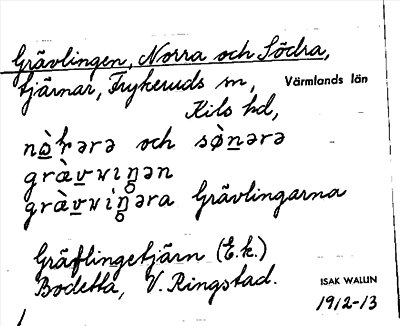 Grävlingen, Norra och Södra,
tjärnar, Frykeruds sn, Värmlands län
Kils hd,
nò̱rərə och sø̀nərə
grä̀vvlingən
Grävlingarna
Gräflingetjärn (E.k.)
Bodetta, V. Ringstad.
ISAK WALLIN
1912-13